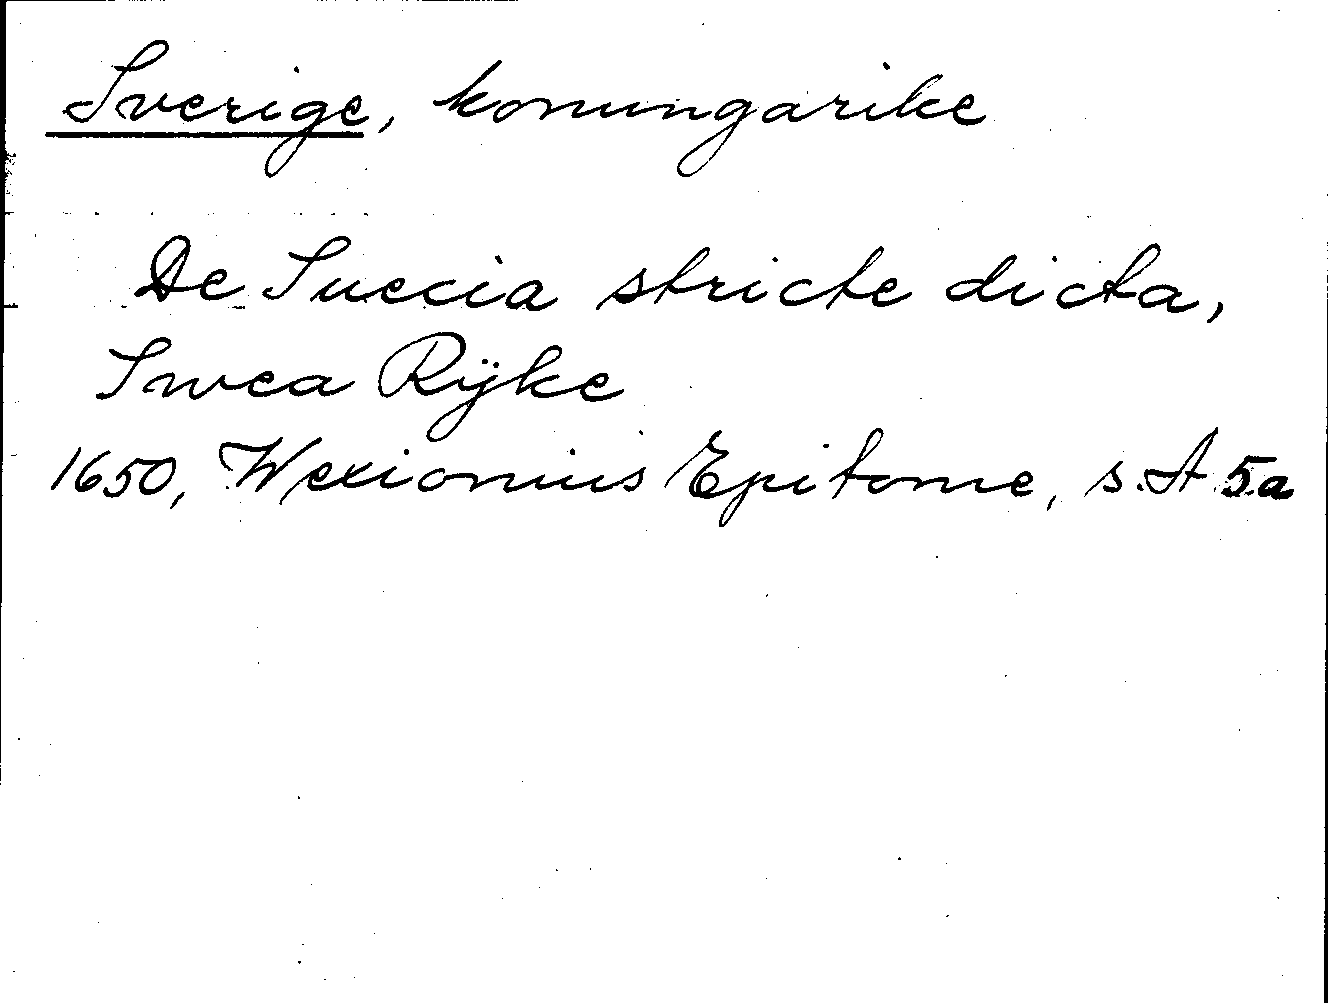 Sverige, konungarike
De Suecia stricte dicta,
Swea Rÿke
1650, Wexionius Epitome, s. A 5a